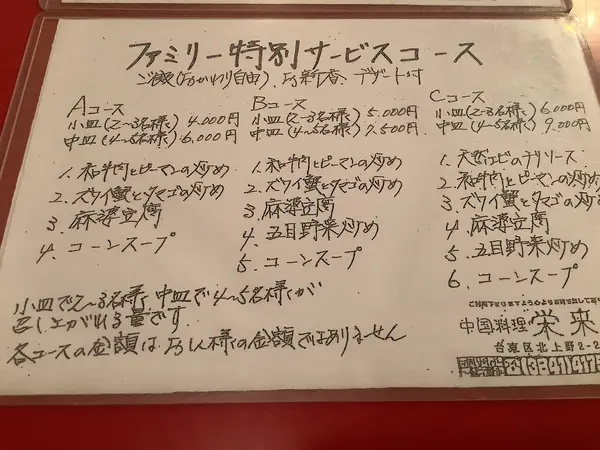 ファミリー特別サービスコース
ご飯(おかわり自由)、お新香、デザート付
Aコース
小皿(2〜3名様) 4.000円
中皿(4〜5名様) 6,000円
1. 和牛肉とピーマンの炒め
2. ズワイ蟹とタマゴの炒め
3. 麻婆豆腐
4. コーンスープ
Bコース
小皿(2〜3名様) 5.000円
中皿(4〜5名様) 7,500円
1. 和牛肉とピーマンの炒め
2. ズワイ蟹とタマゴの炒め
3. 麻婆豆腐
4. 五目野菜炒め
5. コーンスープ
Cコース
小皿(2〜3名様) 6,000円
中皿(4〜5名様) 9,000円
1. 天然エビのチリソース
2. 和牛肉とピーマンの炒め
3. ズワイ蟹とタマゴの炒め
4. 麻婆豆腐
5. 五目野菜炒め
6. コーンスープ
小皿で2〜3名様、中皿で4〜5名様が
召し上がれる量です
各コースの金額はお1人様の金額ではありません
中国料理 栄来
台東区北上野2-2